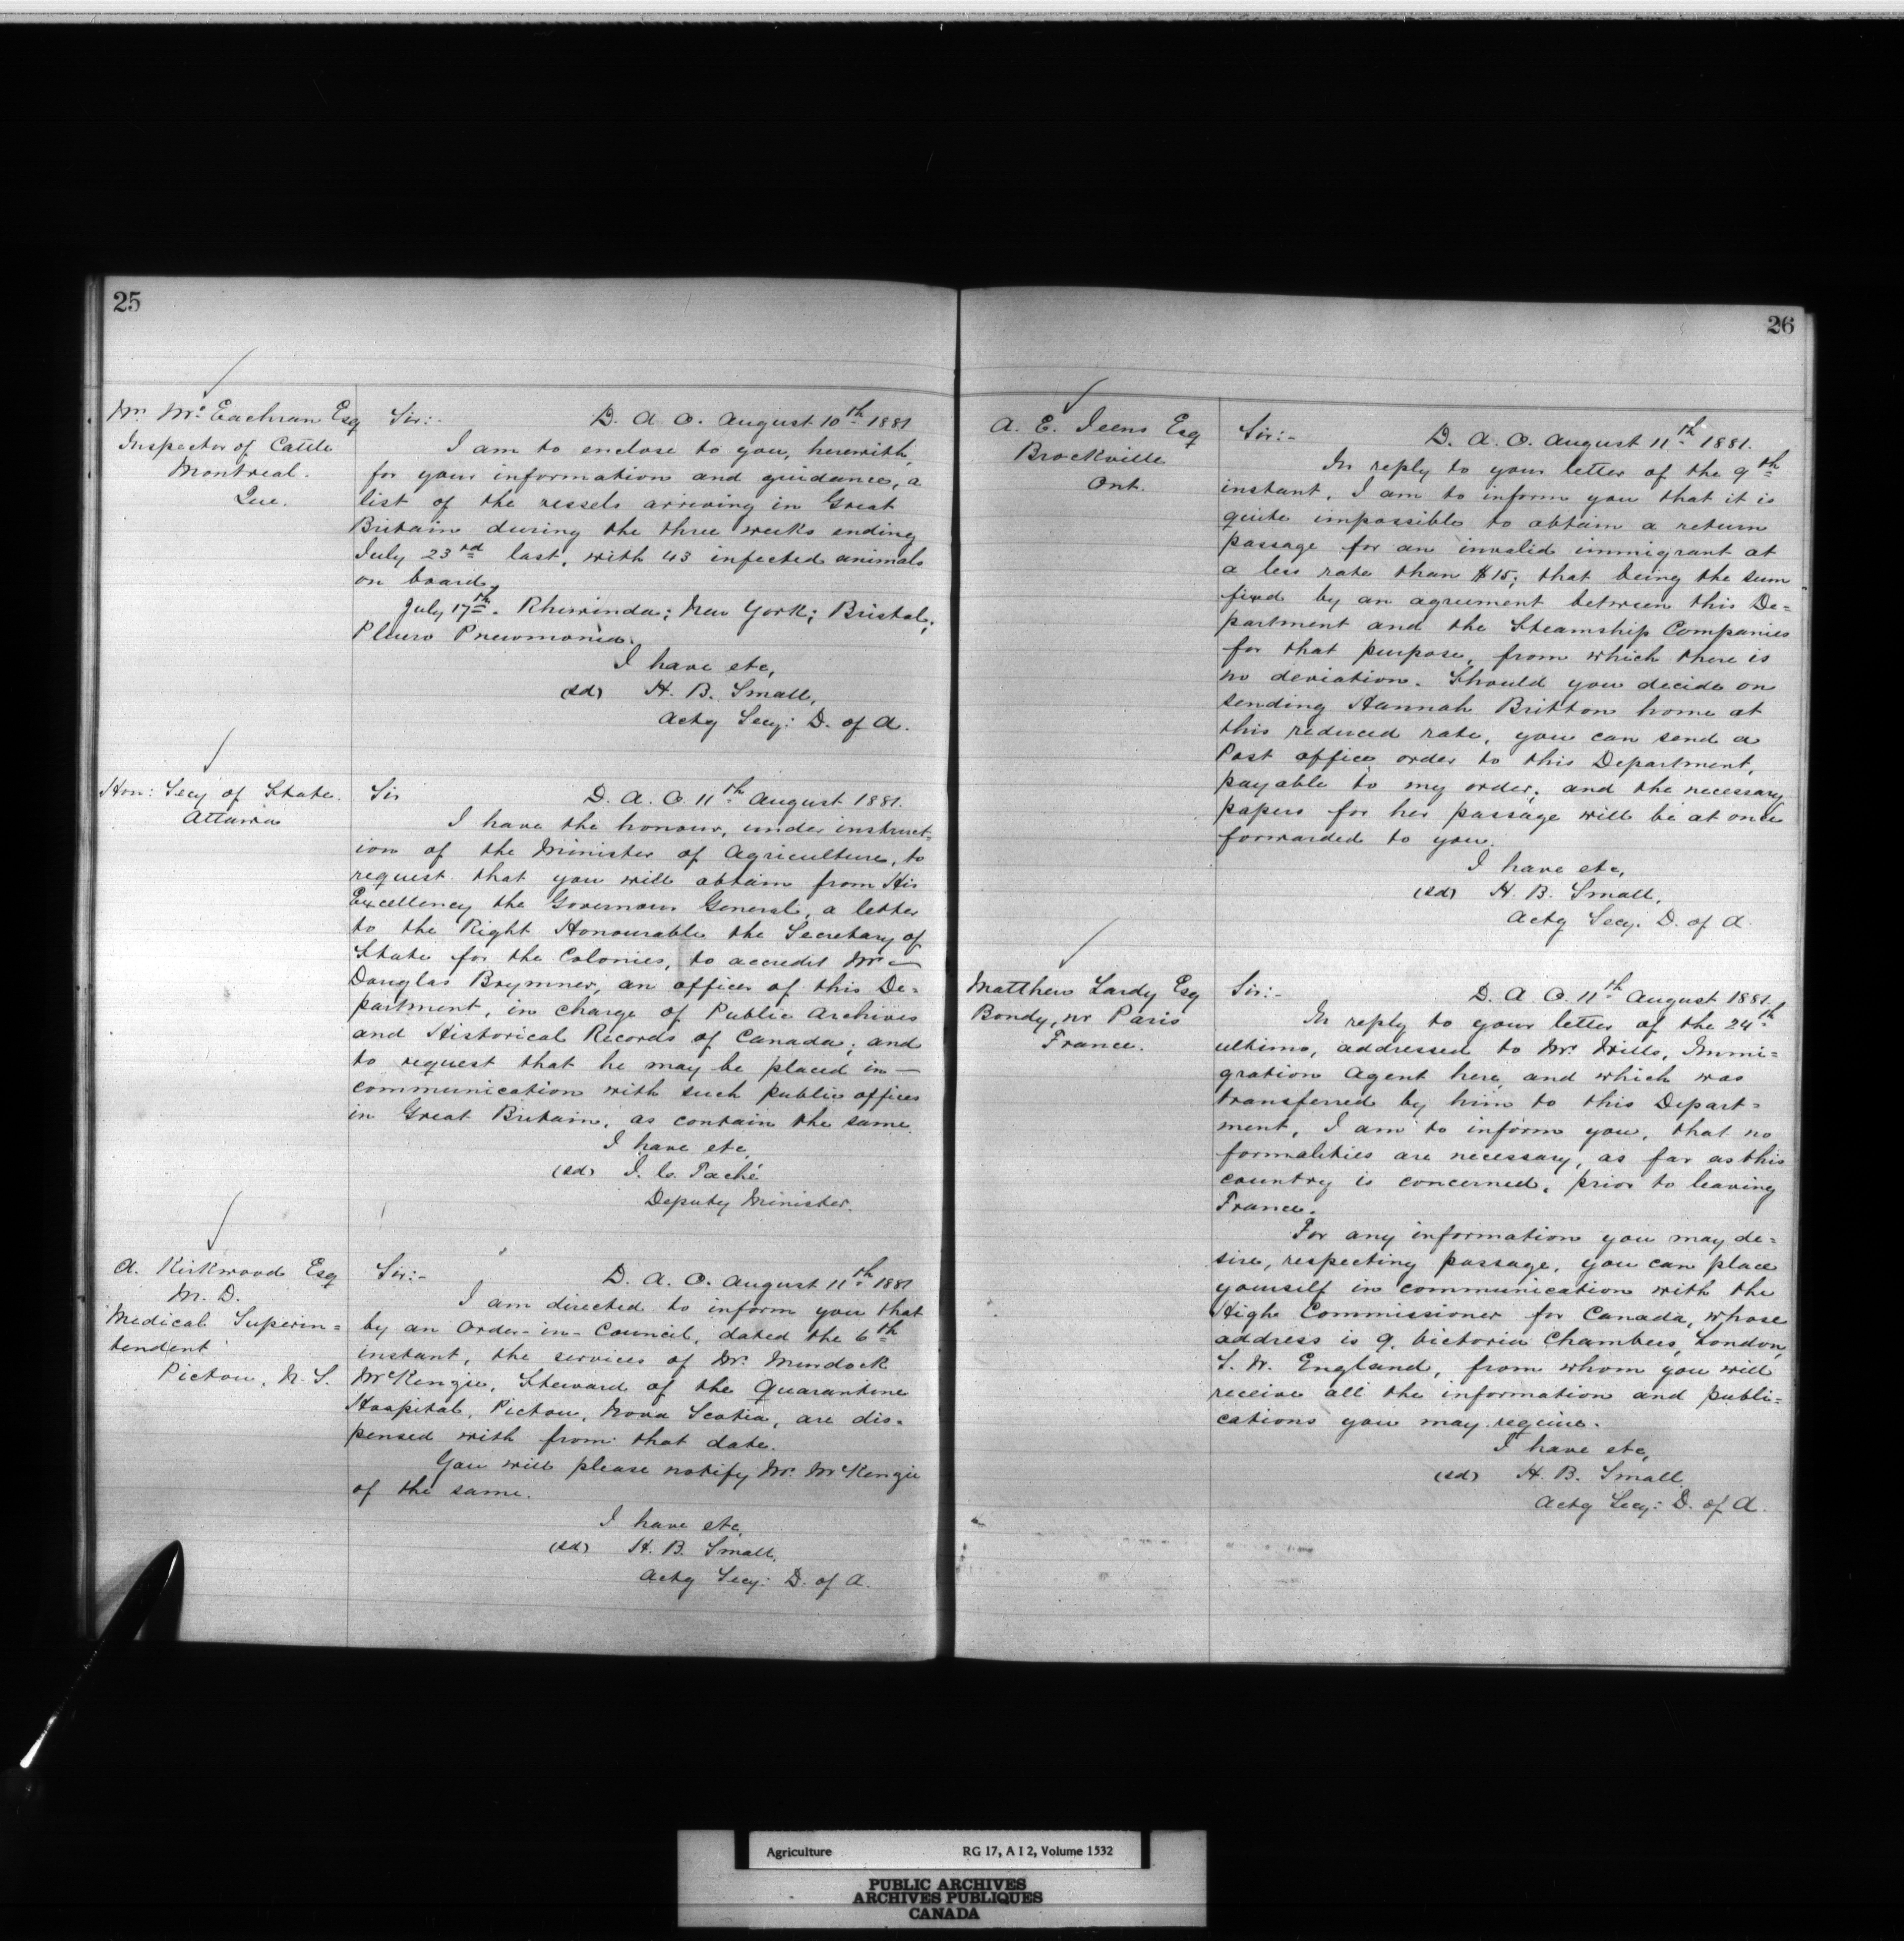 25
Wm McEachran Esq
Inspector of Cattle
Montreal.
Que.
Sir:- D. A. O. August 10th 1881
I am to enclose to you, herewith,
for your information and guidance, a
list of the vessels arriving in Great
Britain during the three weeks ending
July 23rd last, with 43 infected animals
on board.
July 17th. Rhiwinda; New York; Bristol;
Pleuro Pneumonia.
I have etc,
(sd) H. B. Small,
Actg Secy: D. of A.
Hon: Secy of State.
Ottawa
Sir D. A. O. 11th August 1881.
I have the honour, under instruct=
ion of the Minister of Agriculture, to
request that you will obtain from His
Excellency the Governour General, a letter
to the Right Honourable the Secretary of
State for the Colonies, to accredit Mr —
Douglas Brymner, an officer of this De=
partment, in charge of Public Archives
and Historical Records of Canada; and
to request that he may be placed in —
communication with such public offices
in Great Britain, as contain the same.
I have etc,
(sd) J. C. Taché
Deputy Minister.
A. Kirkwood Esq
M. D.
Medical Superin=
tendent
Pictou, N. S.
Sir:- D. A. O. August 11th 1881
I am directed to inform you that
by an Order-in-Council, dated the 6th
instant, the services of Mr. Murdock
McKenzie, Steward of the Quarantine
Hospital, Pictou, Nova Scotia, are dis=
pensed with from that date.
You will please notify Mr. McKenzie
of the same.
I have etc,
(sd) H. B. Small,
Actg Secy: D. of A.
26
A. E. Ieens Esq
Brockville
Ont.
Sir:- D. A. O. August 11th 1881.
In reply to your letter of the 9th
instant, I am to inform you that it is
quite impossible to obtain a return
passage for an invalid immigrant at
a less rate than $15; that being the sum
fixed by an agreement between this De=
partment and the Steamship Companies
for that purpose, from which there is
no deviation. Should you decide on
sending Hannah Britton home at
this reduced rate, you can send a
Post office order to this Department,
payable to my order; and the necessary
papers for her passage will be at once
forwarded to you.
I have etc,
(sd) H. B. Small,
Actg Secy. D. of A.
Matthew Lardy Esq
Bondy, nr Paris
France.
Sir:- D. A. O. 11th August 1881.
In reply to your letter of the 24th
ultimo, addressed to Mr. Wills, Immi=
gration Agent here, and which was
transferred by him to this Depart=
ment, I am to inform you, that no
formalities are necessary, as far as this
country is concerned, prior to leaving
France.
For any information you may de=
sire, respecting passage, you can place
yourself in communication with the
High Commissioner for Canada, whose
address is 9. Victoria Chambers, London,
S. W. England, from whom you will
receive all the information and publi=
cations you may require.
I have etc,
(sd) H. B. Small
Actg Secy: D. of A.
Agriculture RG 17, A I 2, Volume 1532
PUBLIC ARCHIVES
ARCHIVES PUBLIQUES
CANADA